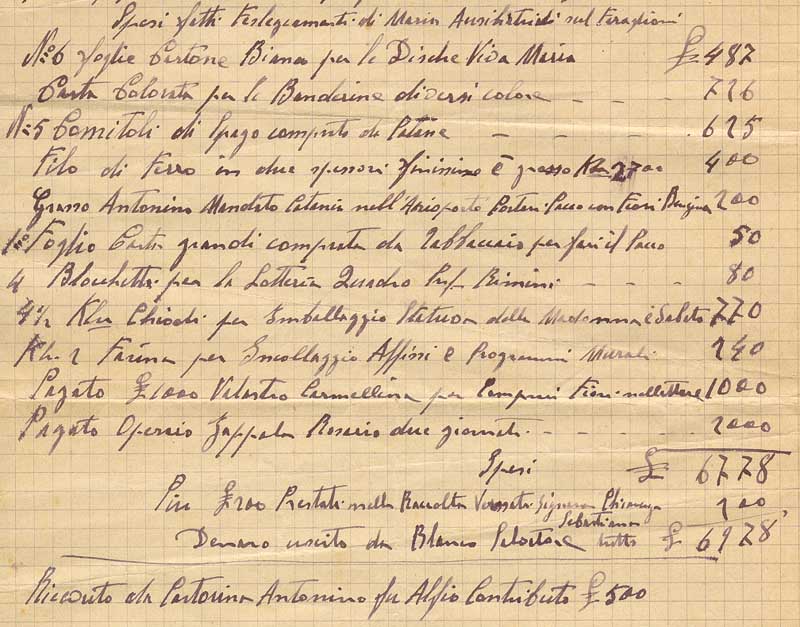 Spesi fatti Festeggiamenti di Maria Ausiliatrici sul Faraglioni
N° 6 foglie Cartone Bianco per le Dische Viva Maria £ 487
Carta Colorata per le Banderine diversi colore - - - - 726
N° 5 Gomitoli di Spago comprato da Patane - - - . 625
Filo di Ferro in due spessori finissimo è grosso 400
Grasso Antonino Mandato Catania nell'Arioporto Portari Pacco con Fiori Benzina 200
1° Foglio Carta grandi comprata da Tabbaccaio per fari il Pacco 50
4 Blocchetti per la Lotteria Quadro Prf. Rimini - - - 80
4½ Klu Chiodi per Emballaggio Statuva della Madonna è Sabeto 770
Kl. 2 Farina per Incollaggio Affissi è Programmi Murali 240
Pagato £ 1000 Valastro Carmellina per Comprari Fiori 1000
Pagato Operaio Zappala Rosario due giornati - - - - - 2000
Spesi £ 6778
Piu £ 200 Prestati nella Raccolta Signora 200
Sebastiana
Denaro uscito da Blanco Salvatore tutto £ 6978
Ricevuto da Cartorina Antonino fu Alfio Contributo £ 500